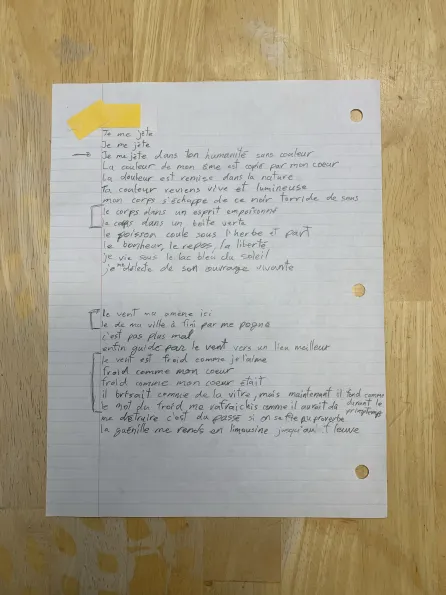 Je me jète
Je me jète
Je me jète dans ton humanité sans couleur
La couleur de mon âme est copié par mon coeur
La douleur est remise dans la nature
Ta couleur reviens vive et lumineuse
mon corps s'échappe de ce noir torride de sens
le corps dans un esprit empoisonné
le corps dans un boîte verte
le poisson coule sous l'herbe et part
le bonheur, le repos, la liberté
je vie sous le lac bleu du soleil
je me délecte de son ouvrage vivante
le vent ma amène ici
le de ma ville à fini par me pogné
c'est pas plus mal
enfin guidé par le vent vers un lieu meilleur
le vent est froid comme je l'aime
froid comme mon coeur
froid comme mon coeur était
il comme de la vitre, mais maintenant il fond comme durant le printemps
le mot du froid me rafraichis comme il aurait du
me détruire c'est du passé si on se fie au proverbe
la guenille me rends en limousine jusqu'au louve